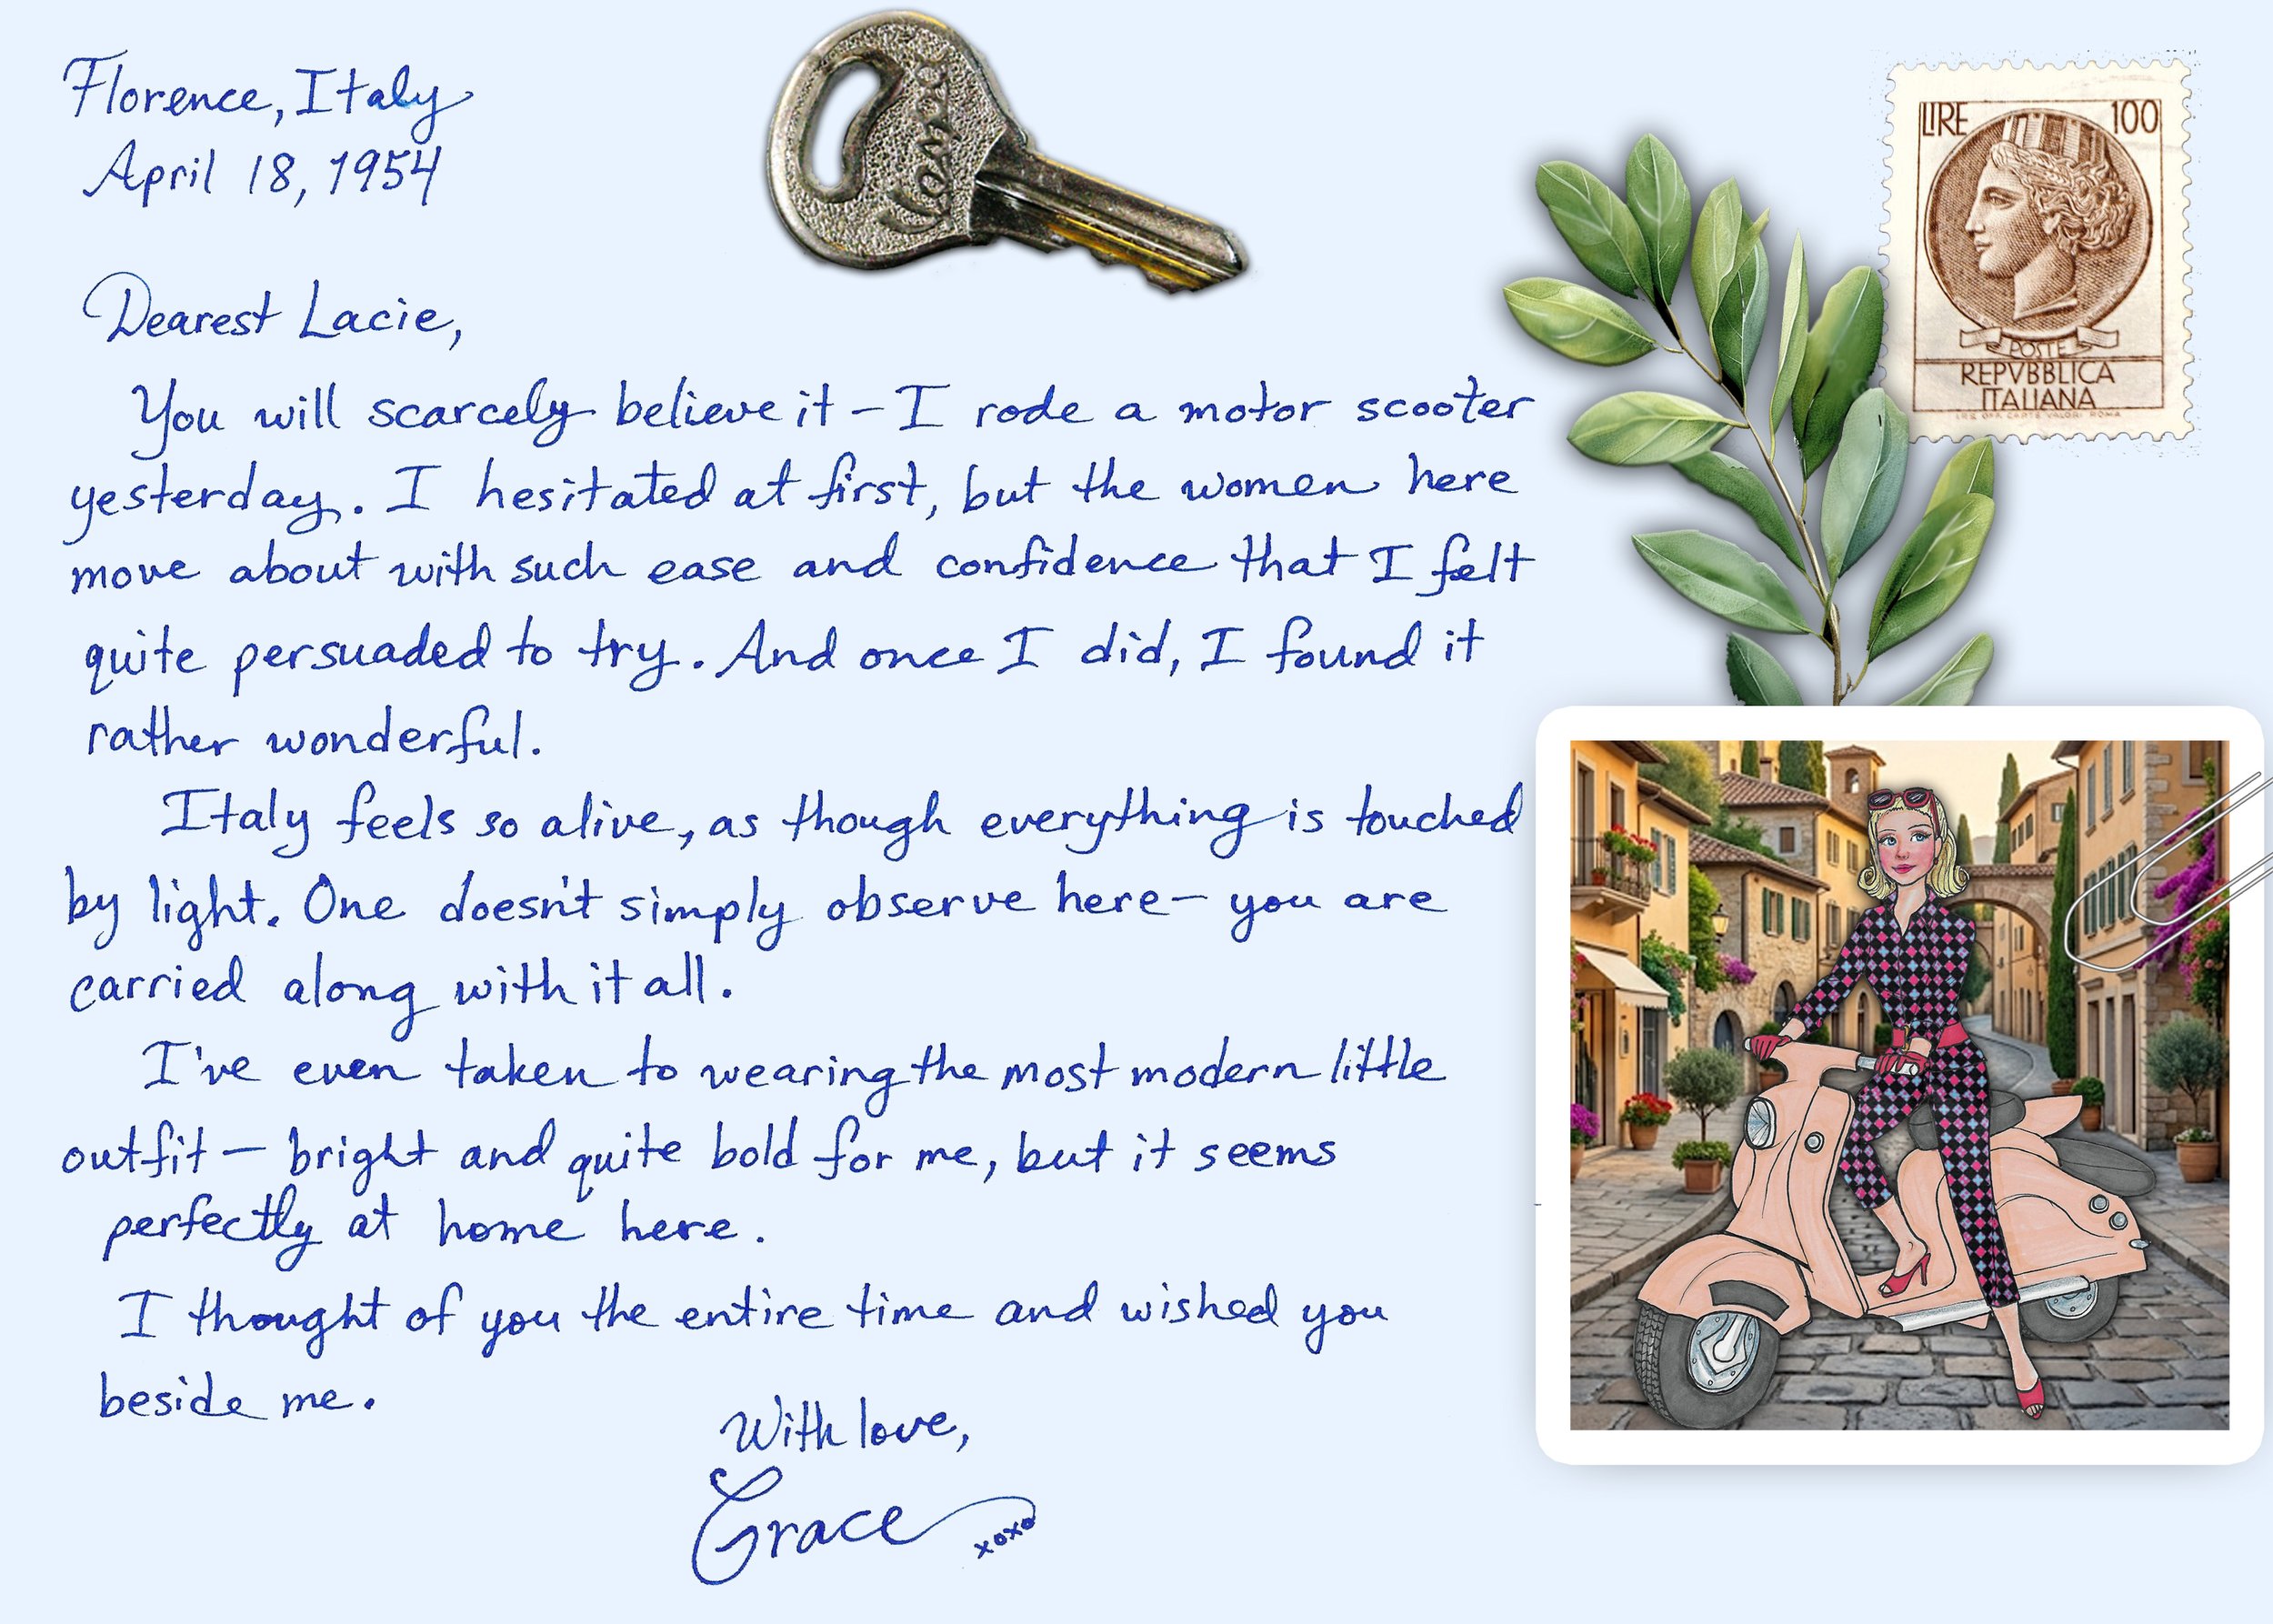 Florence, Italy
April 18, 1954
Dearest Lacie,
You will scarcely believe it – I rode a motor scooter
yesterday. I hesitated at first, but the women here
move about with such ease and confidence that I felt
quite persuaded to try. And once I did, I found it
rather wonderful.
Italy feels so alive, as though everything is touched
by light. One doesn't simply observe here – you are
carried along with it all.
I've even taken to wearing the most modern little
outfit – bright and quite bold for me, but it seems
perfectly at home here.
I thought of you the entire time and wished you
beside me.
With love,
Grace
xoxo
LIRE 100
POSTE
REPVBBLICA
ITALIANA